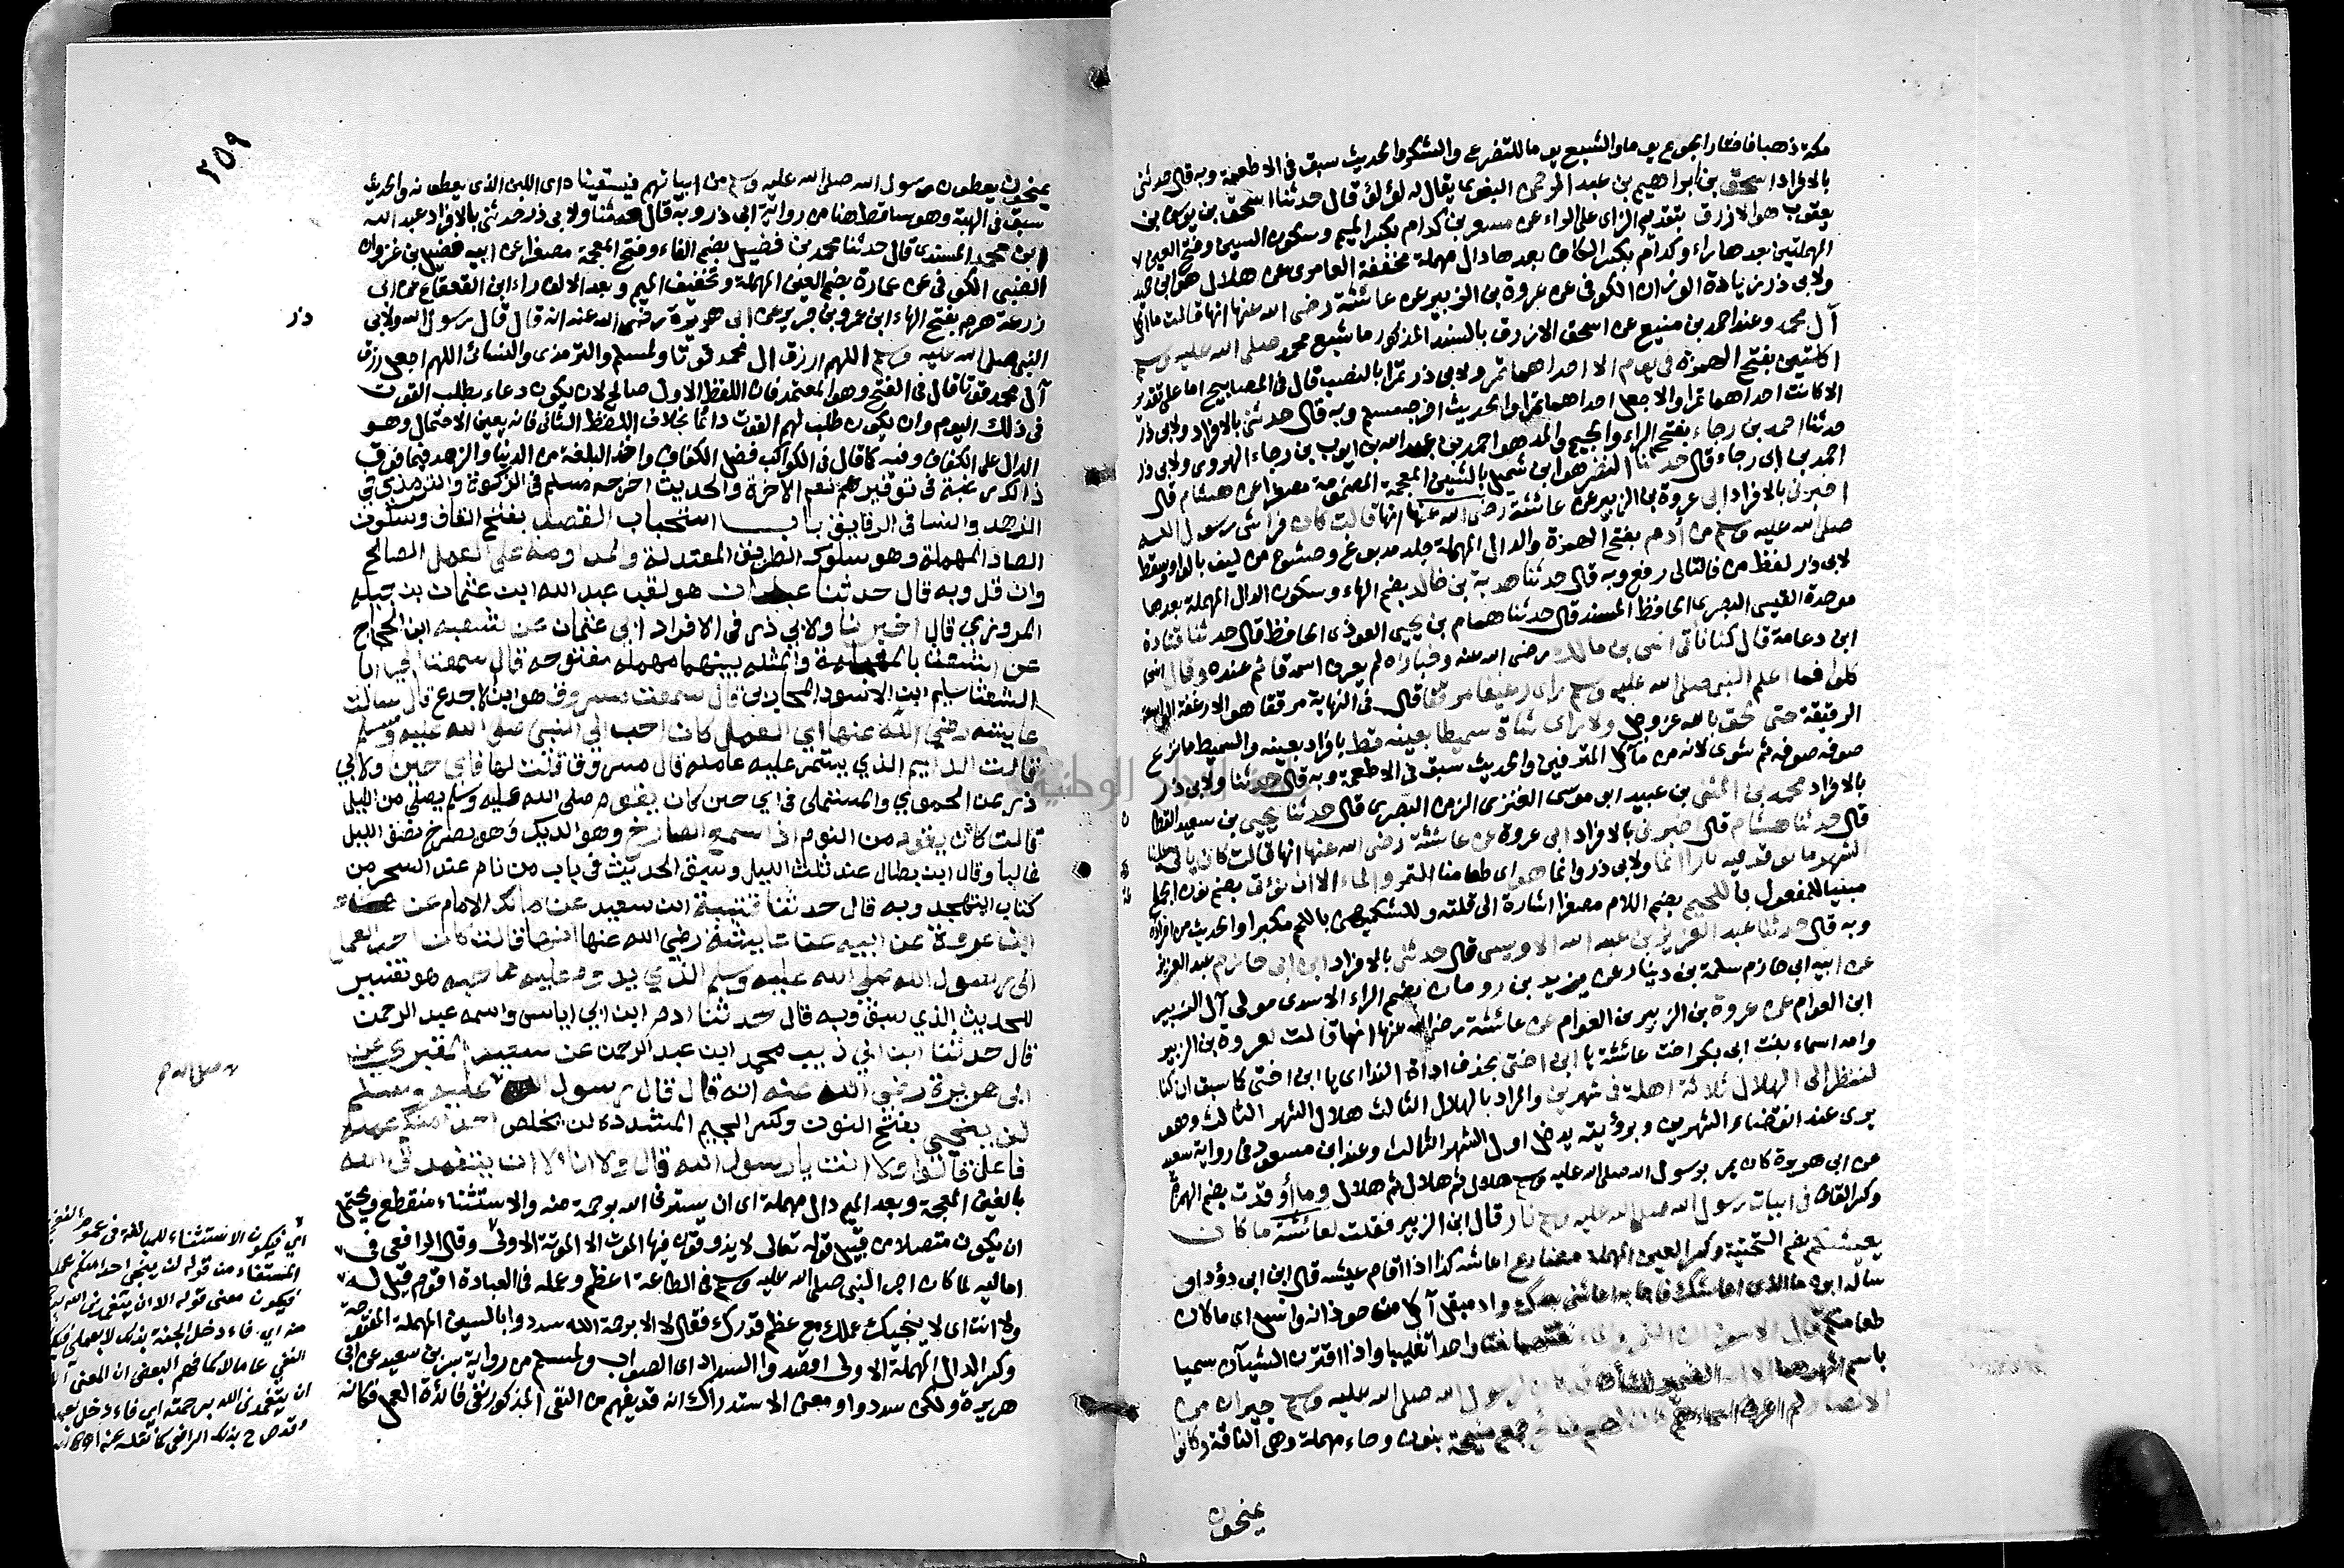 مكة ذهبا فاختار الجوع يوما والشبع يوما للتضرع والشكر والحديث سبق في الاطعمة وبه قال حدثني
بالافراد اسحق بن ابراهيم بن عبد الرحمن البغوى يقال له لؤلؤ قال حدثنا اسحق بن يوسف بن
يعقوب هو الازرق بتقديم الزاى على الراء عن مسعر بن كدام بكسر الميم وسكون السين وفتح العين
المهملتين بعدها راء وكدام بكسر الكاف بعدها دال مهملة مخففة العامرى عن هلال هو ابن حميد
ولابى ذر زيادة الوزان الكوفى عن عروة بن الزبير عن عائشة رضى الله عنها انها قالت ما اكل
آل محمد وعند احمد بن منيع عن اسحق الازرق بالسند المذكور ما شبع محمد صلى الله عليه وسلم
اكلتين بفتح الهمزة في يوم الا احداهما تمر ولابى ذر تمرا بالنصب قال فى المصابيح اما على تقدير
الا كانت احداهما تمرا والا جعل احداهما تمرا والحديث اخرجه مسلم وبه قال حدثنى بالافراد ولابى ذر
حدثنا احمد بن رجاء بفتح الراء والجيم والمد هو احمد بن عبد الله بن ايوب بن رجاء الهروى ولابى ذر
احمد بن ابى رجاء قال حدثنا النضر هو ابن شميل بالشين المعجمة المضمومة مصغرا عن هشام قال
اخبرنى بالافراد ابى عروة بن الزبير عن عائشة رضى الله عنها انها قالت كان فراش رسول الله
صلى الله عليه وسلم من أدم بفتح الهمزة والدال المهملة جلد مدبوغ وحشوه من ليف بالفاء وسقط
لابى ذر لفظ من فالتالى رفع وبه قال حدثنا هدبة بن خالد بضم الهاء وسكون الدال المهملة بعدها
موحدة القيسى البصرى الحافظ المسند قال حدثنا همام بن يحيى العوذى الحافظ قال حدثنا قتادة
ابن دعامة قال كنا ناتى انس بن مالك رضى الله عنه وخبازه لم يعرف اسمه قائم عنده وقال انس
كلوا فما اعلم النبى صلى الله عليه وسلم راى رغيفا مرققا قال فى النهاية مرققا هو الارغفة الواسعة
الرقيقة حتى لحق بالله عزوجل ولا راى شاة سميطا بعينه قط بافراد بعينه والسميط ما نزع
صوفه ثم شوى لانه من ماكل المترفين والحديث سبق في الاطعمة وبه قال حدثنا ولابى ذر
بالافراد محمد بن المثنى بن عبيد ابو موسى العنزى الزمن البصرى قال حدثنا يحيى بن سعيد القطان
قال حدثنا هشام قال اخبرنى بالافراد ابى عروة عن عائشة رضى الله عنها انها قالت كان ياتى علينا
الشهر ما نوقد فيه نارا انما ولابى ذر وانما هو اى طعامنا التمر والماء الا ان نؤتى بضم نون الجمع
مبنيا للمفعول باللحيم بضم اللام مصغرا اشارة الى قلته وللكشميهنى باللحم مكبرا والحديث من افراده
وبه قال حدثنا عبد العزيز بن عبد الله الاويسى قال حدثنى بالافراد ابن ابى حازم عبد العزيز
عن ابيه ابى حازم سلمة بن دينار عن يزيد بن رومان بضم الراء الاسدى مولى آل الزبير
ابن العوام عن عروة بن الزبير بن العوام عن عائشة رضى الله عنها انها قالت لعروة بن الزبير
وامه اسماء بنت ابى بكر اخت عائشة يا ابن اختى بحذف اداة الندا اى يا ابن اختى كما سبق ان كنا
لننظر الى الهلال ثلاثة اهلة فى شهرين والمراد بالهلال الثالث هلال الشهر الثالث وهو
يرى عند انقضاء الشهرين وبرؤيته يدخل اول الشهر الثالث وعند ابن مسعود فى رواية سعيد
عن ابى هريرة كان يمر برسول الله صلى الله عليه وسلم هلال ثم هلال ثم هلال وما أوقدت بضم الهمزة
وكسر القاف فى ابيات رسول الله صلى الله عليه وسلم نار قال ابن الزبير فقلت لعائشة ما كان
يعيشكم بضم التحتية وكسر العين المهملة مضارع اعاشه كذا اذا اقام عيشه قال ابن ابى دؤاد
ساله ابوه ما الذى اعاشك فاجابه اعاشنى بعدك واد مبقل آكل من حوذانه وانسل اى ما كان
طعامكم قالت الاسودان التمر والماء نعتهما نعتا واحدا تغليبا واذا اقترن الشيآن سميا
باسم اشهرهما الا انه الضمير للشأن قد كان لرسول الله صلى الله عليه وسلم جيران من
الانصار لم اعرف اسماءهم كان لهم منائح جمع منيحة بنون وحاء مهملة وهى الناقة وكانوا
يمنحون
٢٥٩
يمنحون يعطون رسول الله صلى الله عليه وسلم من ابياتهم فيسقيناه اى اللبن الذى يعطونه والحديث
سبق فى الهبة وهو ساقط هنا من رواية ابى ذر وبه قال حدثنا ولابى ذر حدثنى بالافراد عبد الله
ابن محمد المسندى قال حدثنا محمد بن فضيل بضم الفاء وفتح المعجمة مصغرا عن ابيه فضيل بن غزوان
الضبى الكوفى عن عمارة بضم العين المهملة وتخفيف الميم وبعد الالف راء ابن القعقاع عن ابى
زرعة هرم بفتح الهاء ابن عمرو بن جرير عن ابى هريرة رضى الله عنه انه قال قال رسول الله ولابى
ذر
النبى صلى الله عليه وسلم اللهم ارزق ال محمد قوتا ولمسلم والترمذى والنسائى اللهم اجعل رزق
آل محمد قوتا قال فى الفتح وهو المعتمد فان اللفظ الاول صالح لان يكون دعاء بطلب القوت
فى ذلك اليوم وان يكون طلب لهم القوت دائما بخلاف اللفظ الثانى فانه يعين الاحتمال وهو
الدال على الكفاف وفيه كما قال فى الكواكب فضل الكفاف واخذ البلغة من الدنيا والزهد فيما فوق
ذالك رغبة فى توفير نعم الاخرة والحديث اخرجه مسلم فى الزكوة والترمذى في
الزهد والنساى فى الرقايق باب استحباب القصد بفتح القاف وسكون
الصاد المهملة وهو سلوك الطريق المعتدلة والمداومة على العمل الصالح
وان قل وبه قال حدثنا عبدان هو لقب عبد الله ابن عثمان بن جبلة
المروزي قال اخبرنا ولابي ذر في الافراد ابي عثمان عن شعبه ابن الحجاج
عن اشعث بالمعجمة والمثلثه بينهما مهمله مفتوحه قال سمعت ابي ابا
الشعثا سليم ابن الاسود المحاربى قال سمعت مسروق هو ابن الاجدع قال سالت
عايشه رضي الله عنها اي العمل كان احب الى النبي صلى الله عليه وسلم
قالت الدايم الذي يستمر عليه عامله قال مسروق قلت لها فاي حين ولابي
ذر عن الحموي والمستملى فى اي حين كان يقوم صلى الله عليه وسلم يصلي من الليل
قالت كان يقوم من النوم اذا سمع الصارخ وهو الديك وهو يصرخ نصف الليل
غالبا وقال ابن بطال عند ثلث الليل وسبق الحديث فى باب من نام عند السحر من
كتاب التهجد وبه قال حدثنا قتيبة ابن سعيد عن مالك الامام عن هشام
ابن عروة عن ابيه عن عايشة رضي الله عنها انها قالت كان احب العمل
الى رسول الله صلى الله عليه وسلم الذي يدوم عليه صاحبه هو تفسير
للحديث الذي سبق وبه قال حدثنا ادم ابن ابي اياس واسمه عبد الرحمن
قال حدثنا ابن ابي ذيب محمد ابن عبد الرحمن عن سعيد المقبري عن
ابى هريرة رضي الله عنه انه قال قال رسول الله عليه وسلم
صلى الله
لن ينجي بفتح النون وكسر الجيم المشدده لن يخلص احدا منكم عمله
فاعل قالوا ولا انت يا رسول الله قال ولا انا الا ان يتغمدنى الله
بالغين المعجمة وبعد الميم دال مهملة اى ان يسترنى الله برحمة منه والاستثناء منقطع ويحتمل
ان يكون متصلا من قبيل قوله تعالى لا يذوقون فيها الموت الا الموتة الاولى وقال الرافعى فى
اماليه لما كان اجر النبى صلى الله عليه وسلم فى الطاعة اعظم وعمله فى العبادة اقوم قيل له
ولا انت اى لا ينجيك عملك مع عظم قدرك فقال لا الا برحمة الله سددوا بالسين المهملة المفتوحة
وكسر الدال المهملة الاولى اقصدوا السداد اى الصواب ولمسلم من رواية بسر بن سعيد عن ابى
هريرة ولكن سددوا ومعنى الاستدراك انه قد يفهم من النفى المذكور نفى فائدة العمل فكانه
اي فيكون الاستثناء للمبالغة فى عموم النفي
المستفاد من قوله لن ينجى احدا منكم عمله
فيكون معنى قوله الا ان يتغمدنى الله برحمة
منه اي فاء دخل الجنة بذلك لا بعملى فيكون
النفى عاما لا كما فهم البعض ان المعنى الا
ان يتغمدنى الله برحمته اي فاء دخل بعملى
وقد صرح بذلك الرافعى كما نقله عنه